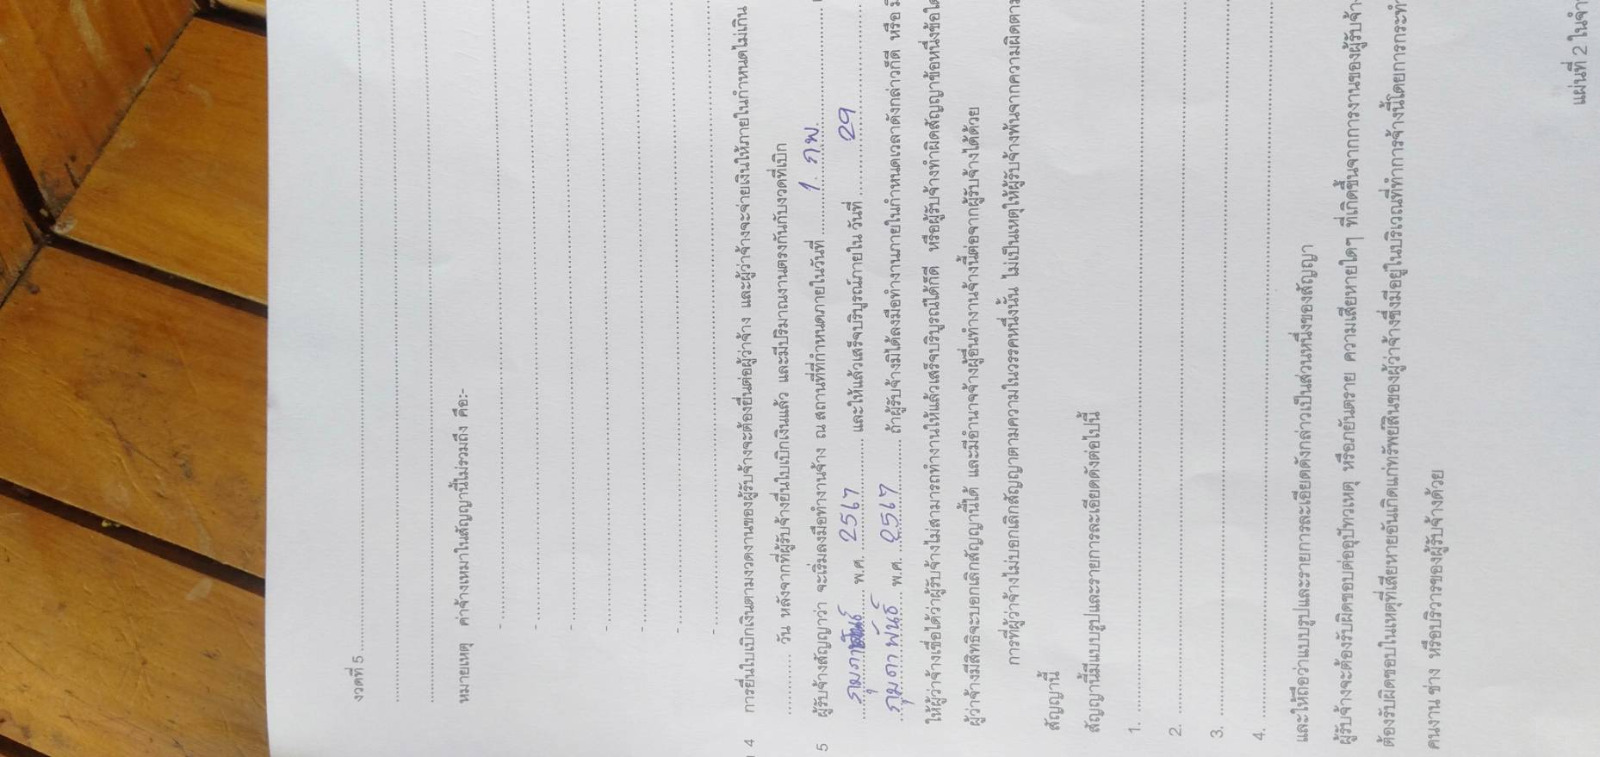 งวดที่ 5
หมายเหตุ ค่าจ้างเหมาในสัญญานี้ไม่รวมถึง คือ:-
-
-
-
-
-
-
-
4 การยื่นใบเบิกเงินตามงวดงานของผู้รับจ้างจะต้องยื่นต่อผู้ว่าจ้าง และผู้ว่าจ้างจะจ่ายเงินให้ภายในกำหนดไม่เกิน
วัน หลังจากที่ผู้รับจ้างยื่นใบเบิกเงินแล้ว และมีปริมาณงานตรงกันกับงวดที่เบิก
5 ผู้รับจ้างสัญญาว่า จะเริ่มลงมือทำงานจ้าง ณ สถานที่ที่กำหนดภายในวันที่ 1. ก.พ.
กุมภาพันธ์ พ.ศ. 2567 และให้แล้วเสร็จบริบูรณ์ภายใน วันที่ 29
กุมภาพันธ์ พ.ศ. 2567 ถ้าผู้รับจ้างมิได้ลงมือทำงานภายในกำหนดเวลาดังกล่าวก็ดี หรือ
ให้ผู้ว่าจ้างเชื่อได้ว่าผู้รับจ้างไม่สามารถทำงานให้แล้วเสร็จบริบูรณ์ได้ก็ดี หรือผู้รับจ้างทำผิดสัญญาข้อหนึ่งข้อใด
ผู้ว่าจ้างมีสิทธิจะบอกเลิกสัญญานี้ได้ และมีอำนาจจ้างผู้อื่นทำงานจ้างนี้ต่อจากผู้รับจ้างได้ด้วย
การที่ผู้ว่าจ้างไม่บอกเลิกสัญญาตามความในวรรคหนึ่งนั้น ไม่เป็นเหตุให้ผู้รับจ้างพ้นจากความผิดตาม
สัญญานี้
สัญญานี้มีแบบรูปและรายการละเอียดดังต่อไปนี้
1.
2.
3.
4.
และให้ถือว่าแบบรูปและรายการละเอียดดังกล่าวเป็นส่วนหนึ่งของสัญญา
ผู้รับจ้างจะต้องรับผิดชอบต่ออุปัทวเหตุ หรือภยันตราย ความเสียหายใดๆ ที่เกิดขึ้นจากการงานของผู้รับจ้าง
ต้องรับผิดชอบในเหตุที่เสียหายอันเกิดแก่ทรัพย์สินของผู้ว่าจ้างซึ่งมีอยู่ในบริเวณที่ทำการจ้างนี้โดยการกระทำ
คนงาน ช่าง หรือบริวารของผู้รับจ้างด้วย
แผ่นที่ 2 ในจำ